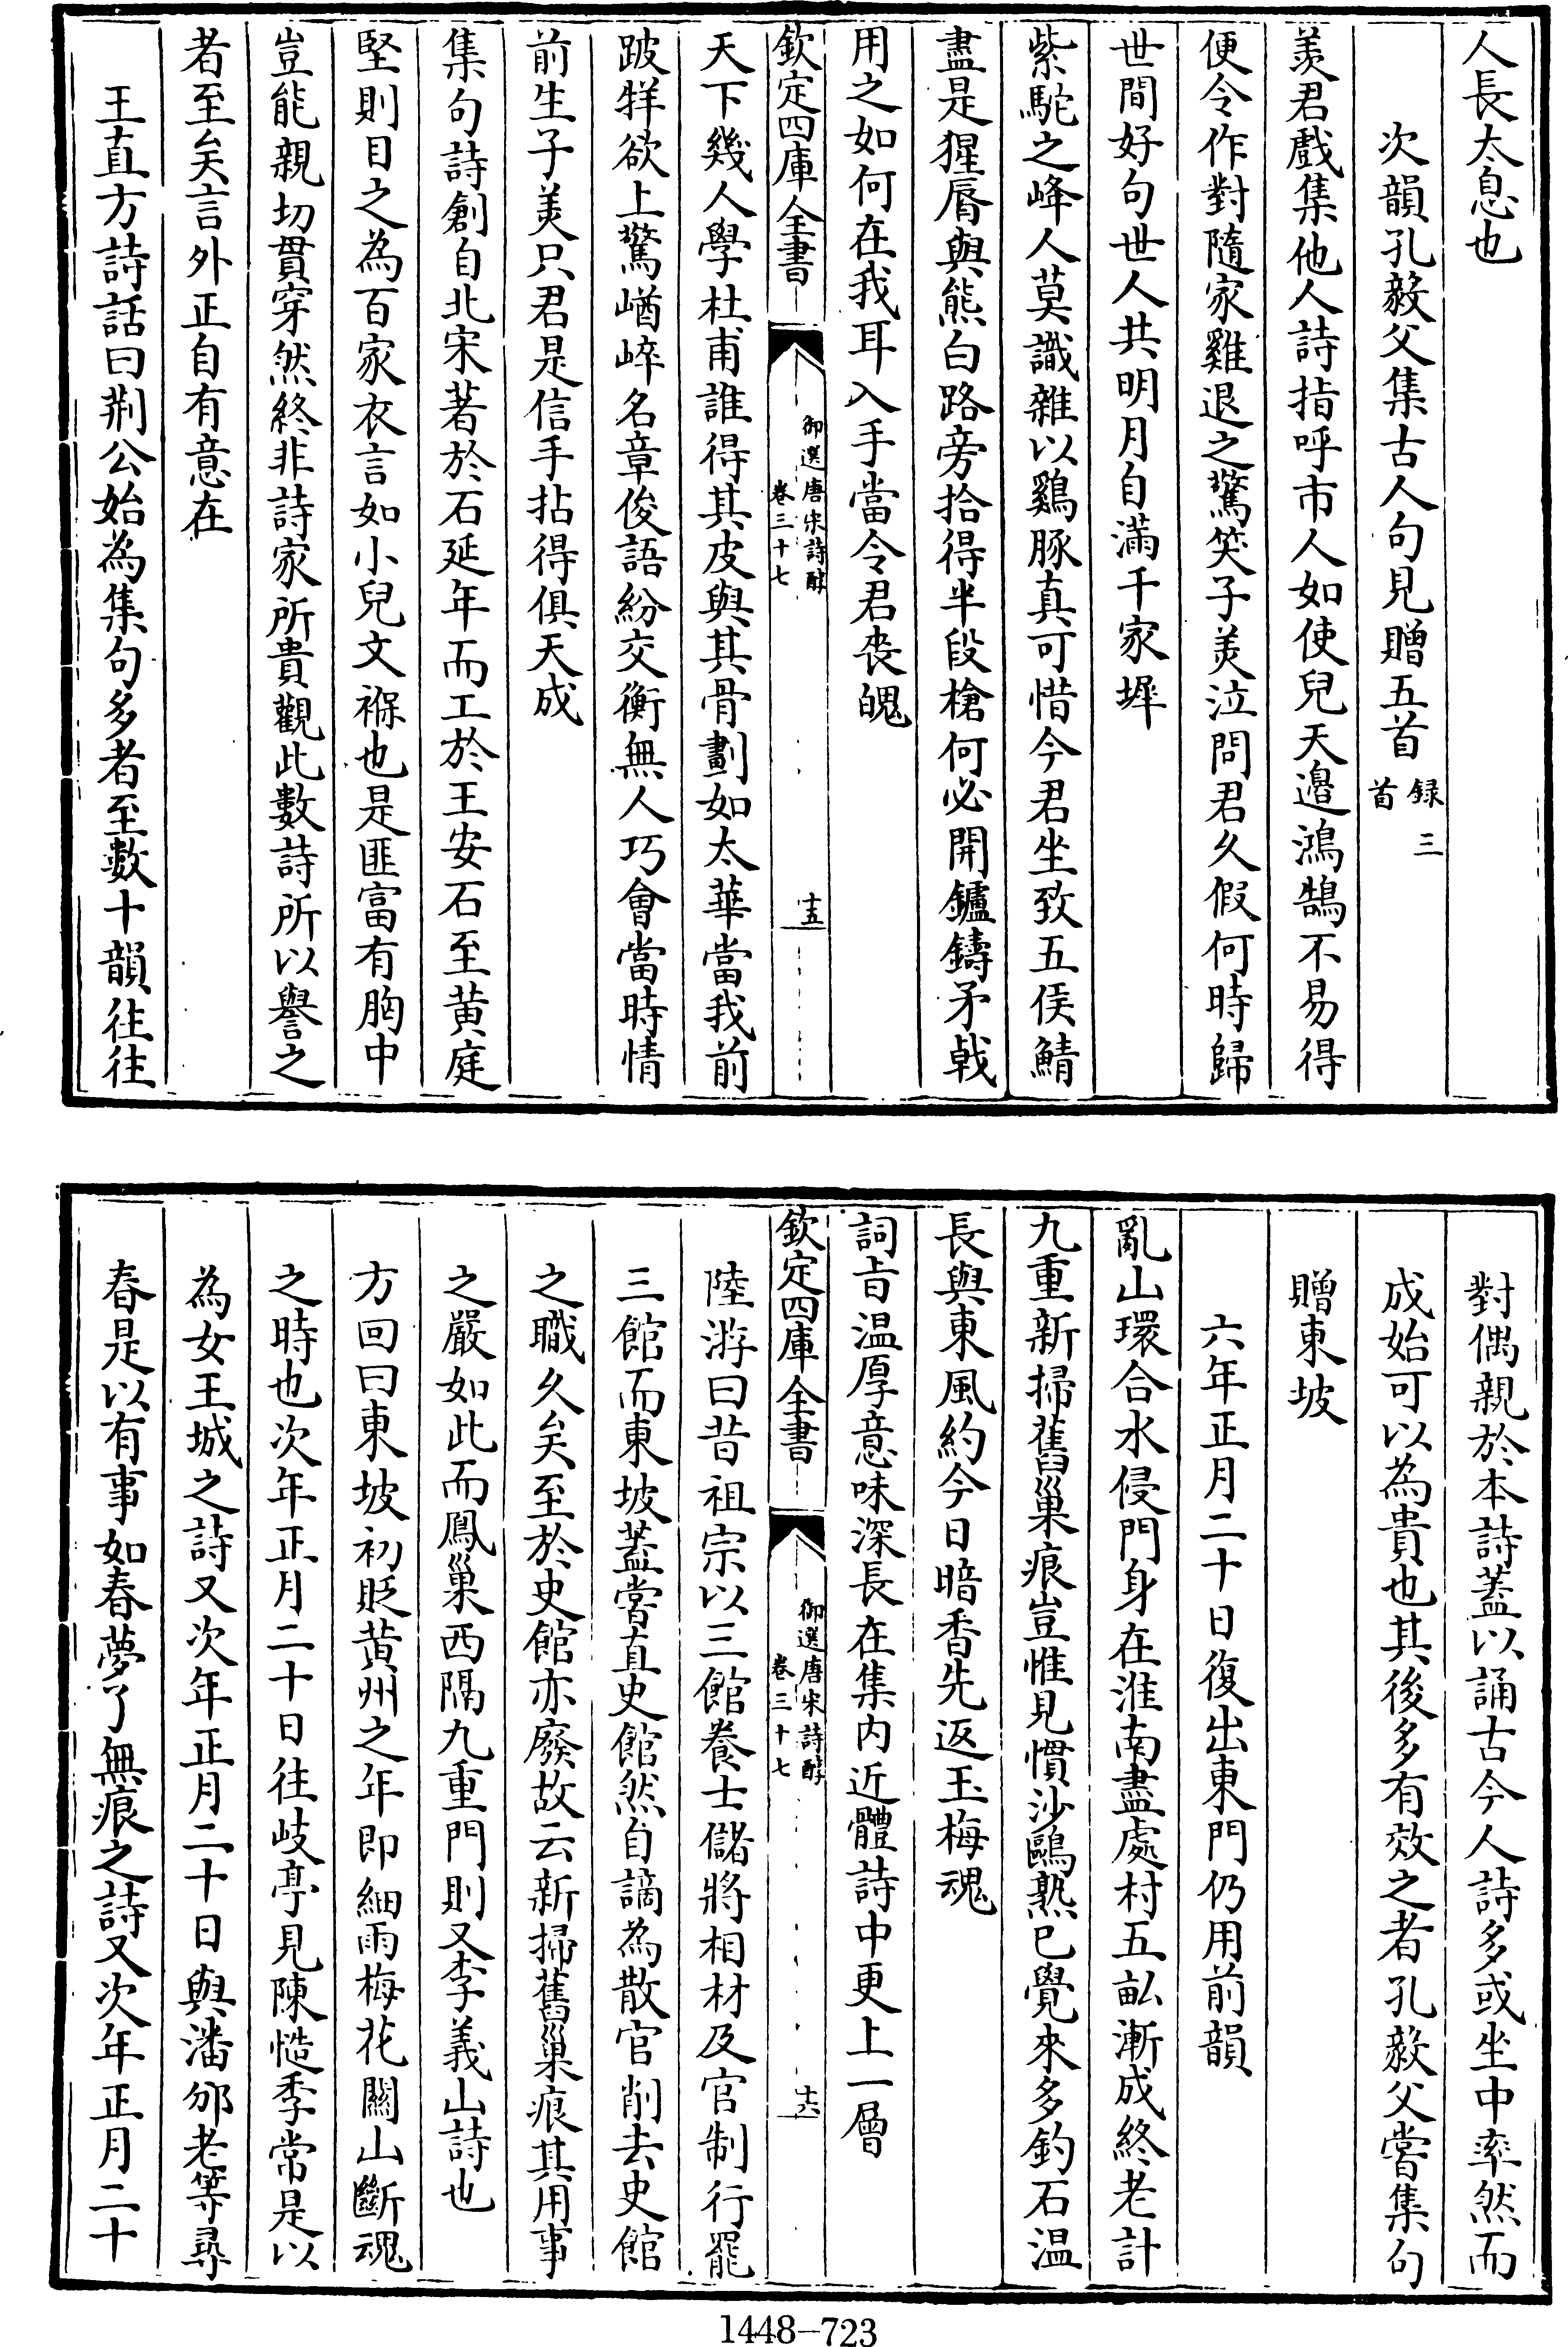 人長太息也
次韻孔毅父集古人句見贈五首録三首
羨君戲集他人詩指呼市人如使兒天邉鴻鵠不易得
便令作對隨家雞退之驚笑子美泣問君久假何時歸
世間好句世人共明月自滿千家墀
紫駝之峰人莫識雜以鷄豚真可惜今君坐致五侯鯖
盡是猩脣與熊白路旁拾得半段槍何必開鑪鑄矛戟
用之如何在我耳入手當令君喪魄
欽定四庫全書
御選唐宋詩醇
卷三十七
十五
天下幾人學杜甫誰得其皮與其骨劃如太華當我前
跛牂欲上驚崷崪名章俊語紛交衡無人巧會當時情
前生子美只君是信手拈得俱天成
集句詩創自北宋著於石延年而工於王安石至黄庭
堅則目之為百家衣言如小兒文褓也是匪富有胸中
豈能親切貫穿然終非詩家所貴觀此數詩所以譽之
者至矣言外正自有意在
王直方詩話曰荆公始為集句多者至數十韻往往
對偶親於本詩葢以誦古今人詩多或坐中率然而
成始可以為貴也其後多有效之者孔毅父嘗集句
贈東坡
六年正月二十日復出東門仍用前韻
亂山環合水侵門身在淮南盡處村五畝漸成終老計
九重新掃舊巢痕豈惟見慣沙鷗熟已覺來多釣石溫
長與東風約今日暗香先返玉梅魂
詞旨溫厚意味深長在集内近體詩中更上一層
欽定四庫全書
御選唐宋詩醇
卷三十七
十六
陸游曰昔祖宗以三館養士儲將相材及官制行罷
三館而東坡葢嘗直史館然自謫為散官削去史館
之職久矣至於史館亦廢故云新掃舊巢痕其用事
之嚴如此而鳳巢西隔九重門則又李義山詩也
方回曰東坡初貶黄州之年即細雨梅花關山斷魂
之時也次年正月二十日往岐亭見陳慥季常是以
為女王城之詩又次年正月二十日與潘邠老等尋
春是以有事如春夢了無痕之詩又次年正月二十
1448-723